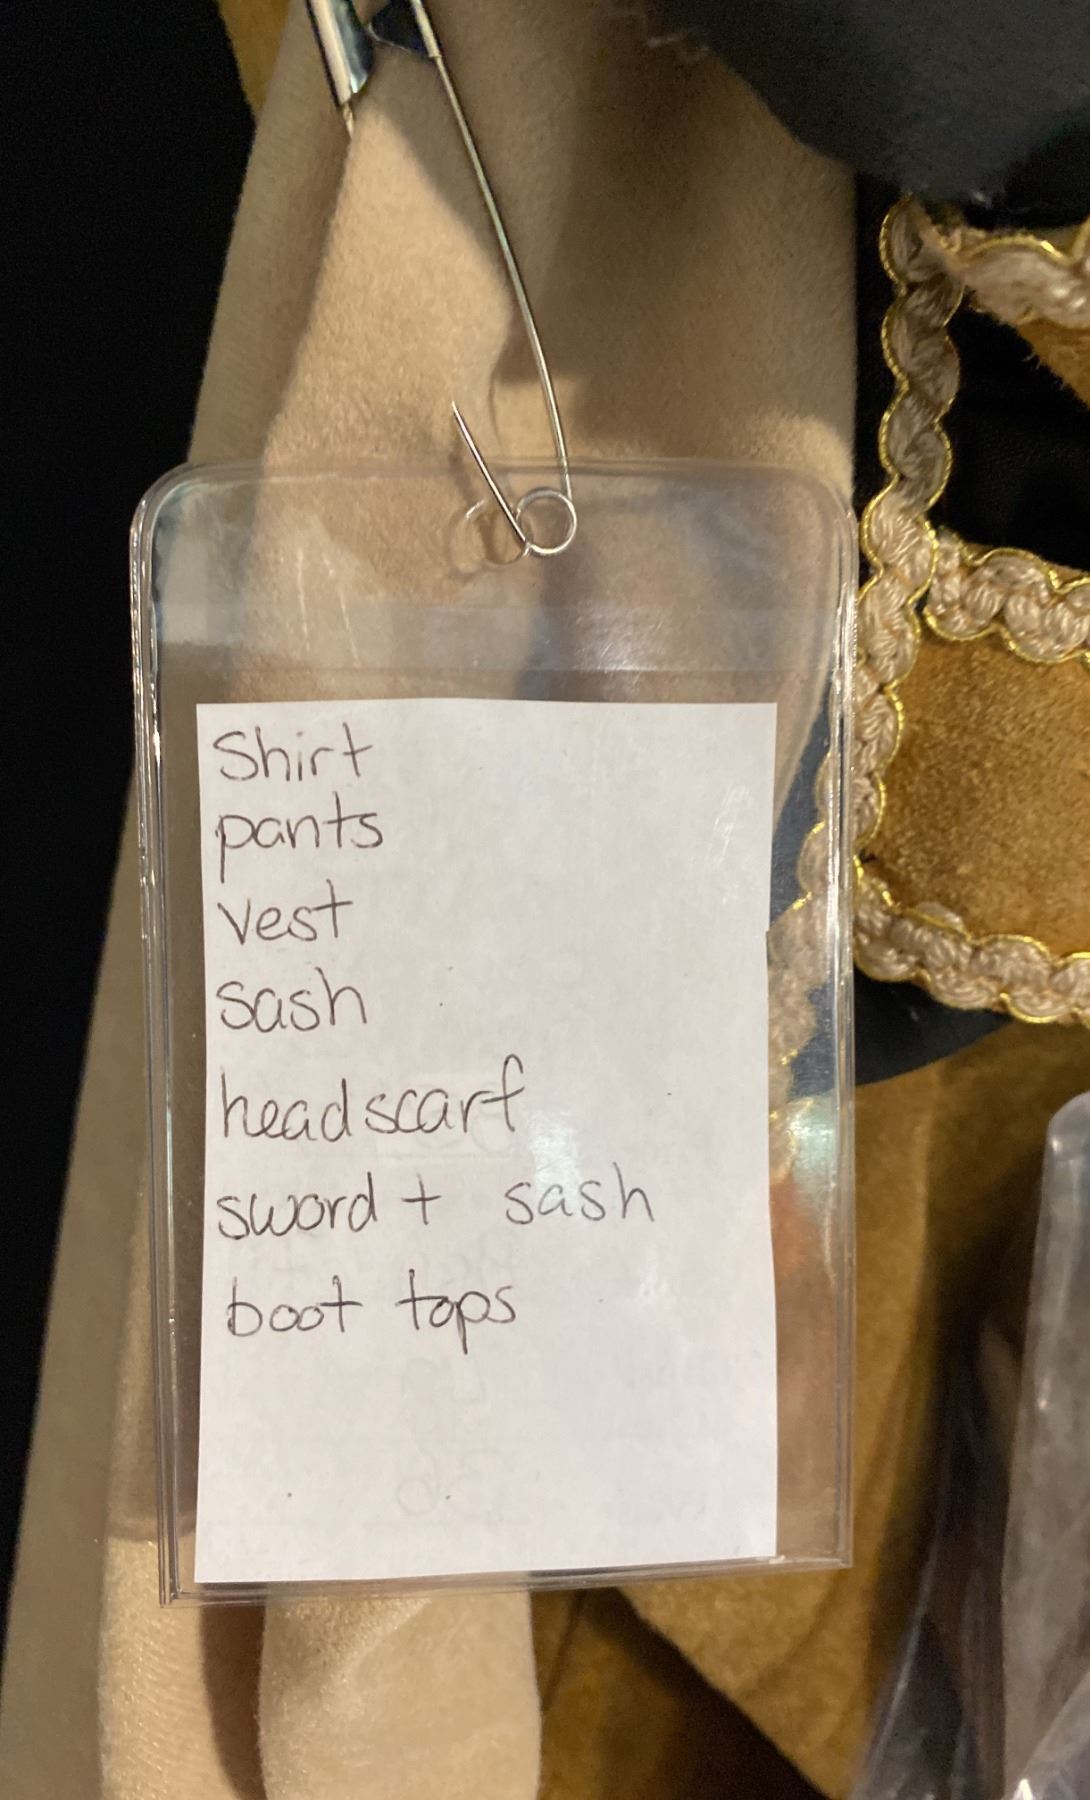 Shirt
pants
vest
sash
headscarf
sword + sash
boot tops